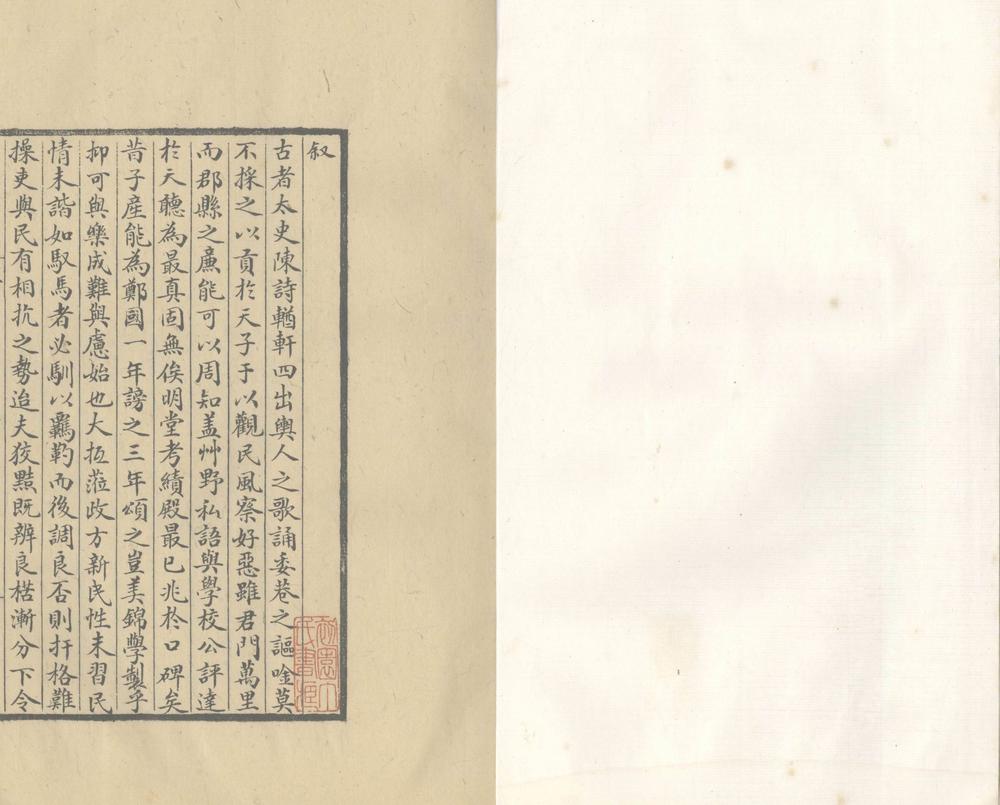 叙
古者太史陳詩輶軒四出輿人之歌誦委巷之謳唫莫
不採之以貢於天子于以觀民風察好惡雖君門萬里
而郡縣之廉能可以周知盖艸野私語與學校公評達
於天聽為最真固無俟明堂考績殿最已兆於口碑矣
昔子産能為鄭國一年謗之三年頌之豈美錦學製乎
抑可與樂成難與慮始也大抵蒞政方新民性未習民
情未諧如馭馬者必馴以羈靮而後調良否則扞格難
操吏與民有相抗之勢迨夫狡黠既辨良楛漸分下令